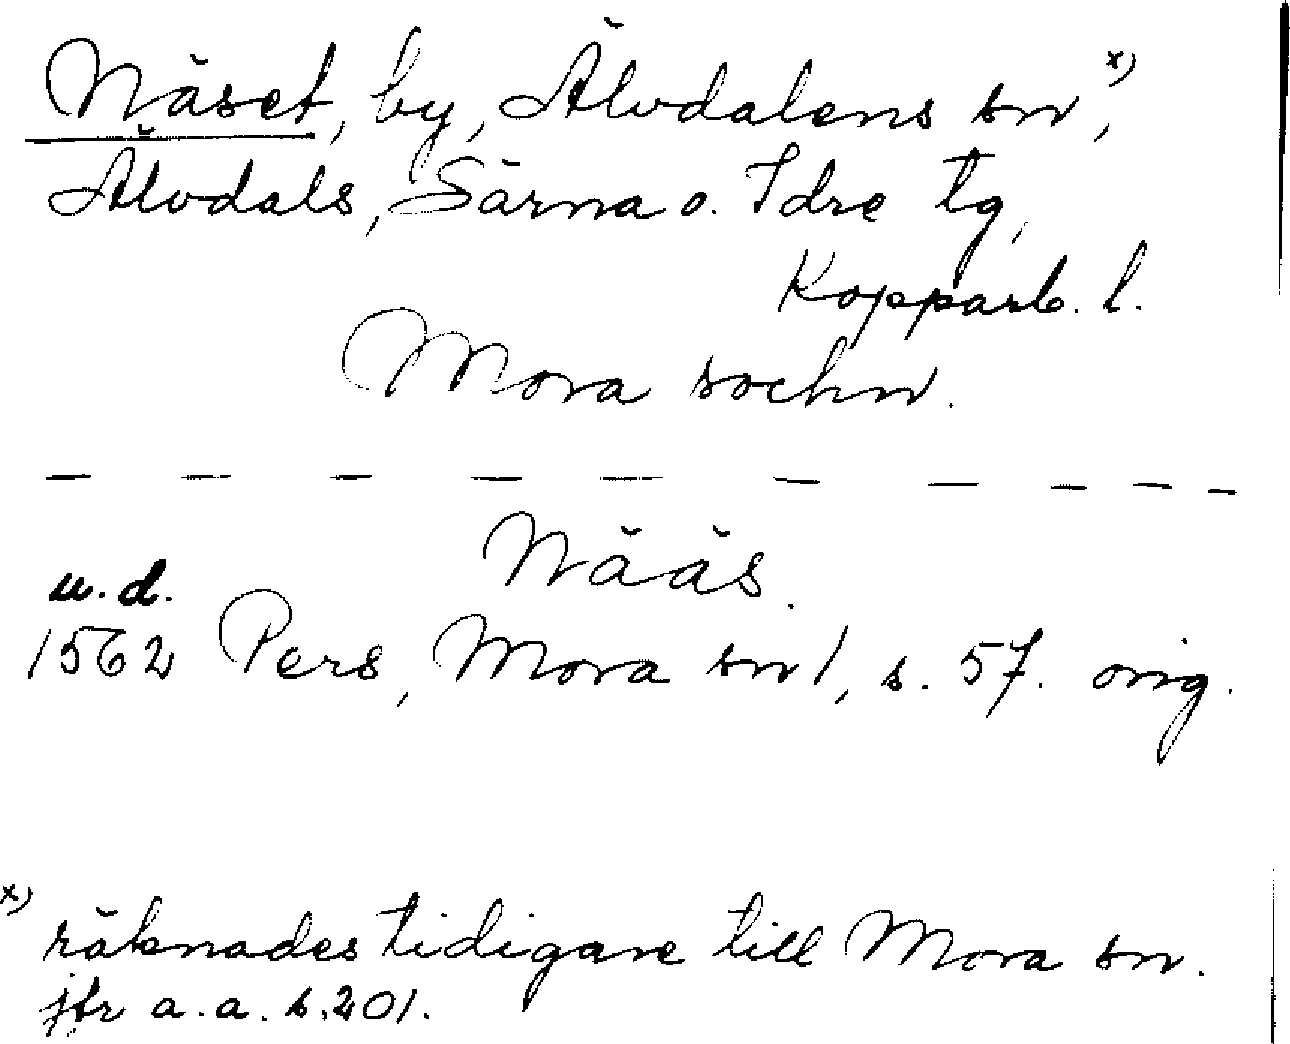 Näset, by, Älvdalens sn,x)
Älvdals, Särna o. Idre tg,
Kopparb. l.
Mora sochn.
— — — — — — — — — —
Nääs.
u.d.
1562 Pers, Mora sn 1, s. 57. orig.
x) räknades tidigare till Mora sn.
jfr a.a. s. 201.